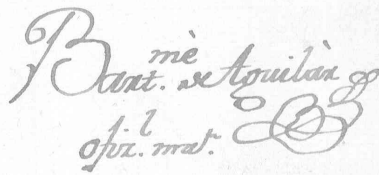 Bartmè. de Aguilàr
ofizl. mat.